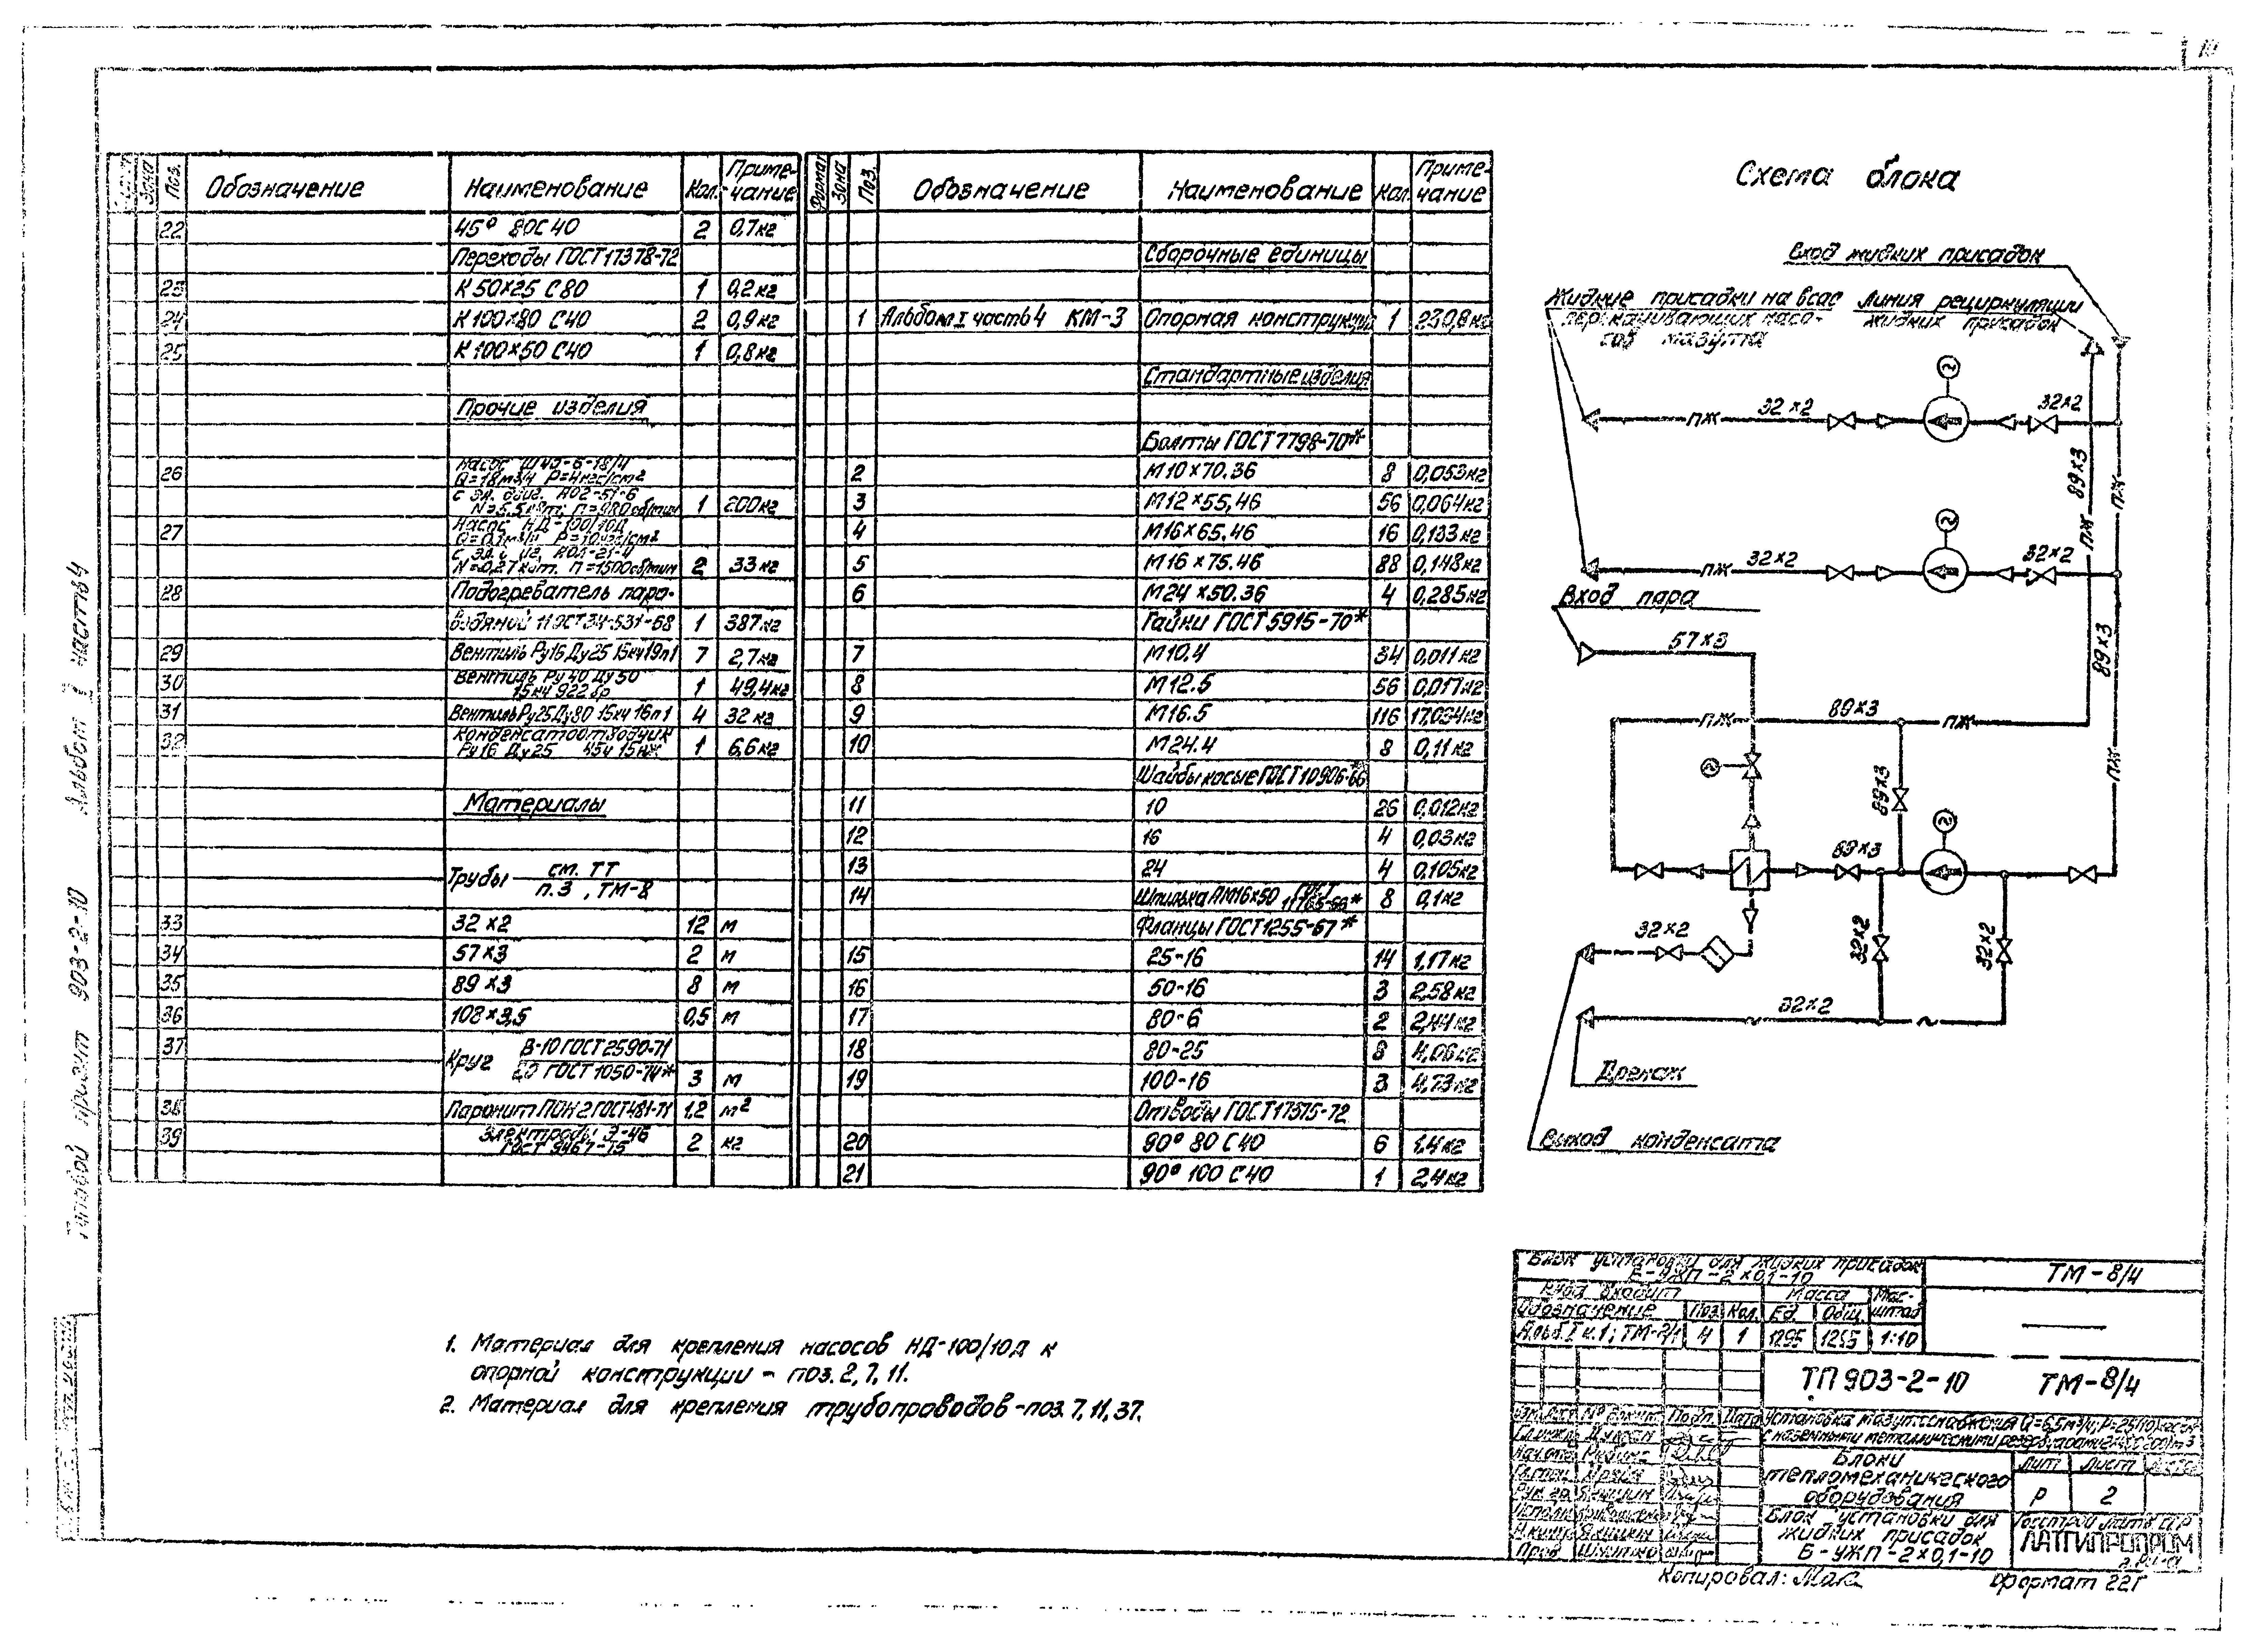 10
Поз.
Зона
Обозначение
Наименование
Кол.
Приме-
чание
22
45° 80С40
2
0,7кг
Переходы ГОСТ17378-72
23
К 50×25 С80
1
0,2кг
24
К100×80 С40
2
0,9кг
25
К100×50 С40
1
0,8кг
Прочие изделия
26
Насос
Q=18м³/ч Р=4кгс/см²
с эл. двиг. АО2-51-6
N=5.5квт; n=980об/мин
1
200кг
27
Насос НД-100/10Д
Q=0,1м³/ч Р=10кгс/см²
N=0,27квт. n=1500об/мин
2
33кг
28
Подогреватель паро-
водяной ОСТ34-531-68
1
387кг
29
Вентиль Ру16 Ду25 15кч19п1
7
2,7кг
30
Вентиль Ру40 Ду50
15кч 922бр
1
49,4кг
31
Вентиль Ру25 Ду80 15кч 16п1
4
32 кг
32
Конденсатоотводчик
Ру16 Ду25 45ч 15нж
1
6,6кг
Материалы
Трубы см. ТТ
п.3 , ТМ-8
33
32 ×2
12
м
34
57×3
2
м
35
89 ×3
8
м
36
108×3,5
0,5
м
37
Круг В-10 ГОСТ2590-71
20 ГОСТ 1050-74*
3
м
38
Паронит ПОН 2 ГОСТ481-71
1,2
м²
39
Электроды Э-46
ГОСТ 9467-75
2
кг
Формат
Зона
Поз.
Обозначение
Наименование
Кол.
Приме-
чание
Сборочные единицы
1
Альбом I часть4 КМ-3
Опорная конструкция
1
230,8кг
Стандартные изделия
Болты ГОСТ7798-70*
2
М10×70.36
8
0,053кг
3
М12×55,46
56
0,064кг
4
М16×65.46
16
0,133кг
5
М16×75.46
88
0,148кг
6
М24×50.36
4
0,285кг
Гайки ГОСТ5915-70*
7
М10.4
34
0,011кг
8
М12.5
56
0,017кг
9
М16.5
116
10
М24.4
8
0,11кг
Шайбы косые ГОСТ10906-66
11
10
26
0,012кг
12
16
4
0,03кг
13
24
4
0,105кг
14
Шпилька АМ16×50
8
0,1кг
Фланцы ГОСТ1255-67*
15
25-16
14
1,17кг
16
50-16
3
2,58кг
17
80-6
2
2,44кг
18
80-25
8
4,06кг
19
100-16
3
4,73кг
Отводы ГОСТ17375-72
20
90° 80 С40
6
1,4кг
21
90° 100 С40
1
2,4кг
Схема блока
Вход жидких присадок
Жидкие присадки на всас
перекачивающих насо-
сов мазута
Линия рециркуляции
жидких присадок
ПЖ
32×2
32×2
89×3
ПЖ
ПЖ
ПЖ
32×2
32×2
Вход пара
57×3
89×3
ПЖ
89×3
ПЖ
ПЖ
89×3
89×3
32×2
32×2
32×2
32×2
Дренаж
Выход конденсата
1. Материал для крепления насосов НД-100/10Д к
опорной конструкции - поз. 2, 7, 11.
2. Материал для крепления трубопроводов-поз. 7, 11, 37.
Типовой проект 903-2-10 Альбом часть4
Блок установки для жидких присадок
Б-УЖП-2×0,1-10
ТМ-8/4
Куда входит
Масса
Мас-
штаб
Обозначение
Поз.
Кол.
Ед.
Общ.
4
1
1295
1295
1:10
ТП 903-2-10 ТМ-8/4
Подп.
Дата
Установка мазутоснабжения
с наземными металлическими резервуарами
Блоки
тепломеханического
оборудования
Лит
Лист
Р
2
Блок установки для
жидких присадок
Б-УЖП-2×0,1-10
ЛАТГИПРОПРОМ
г. Рига
Копировал:
Формат 22Г